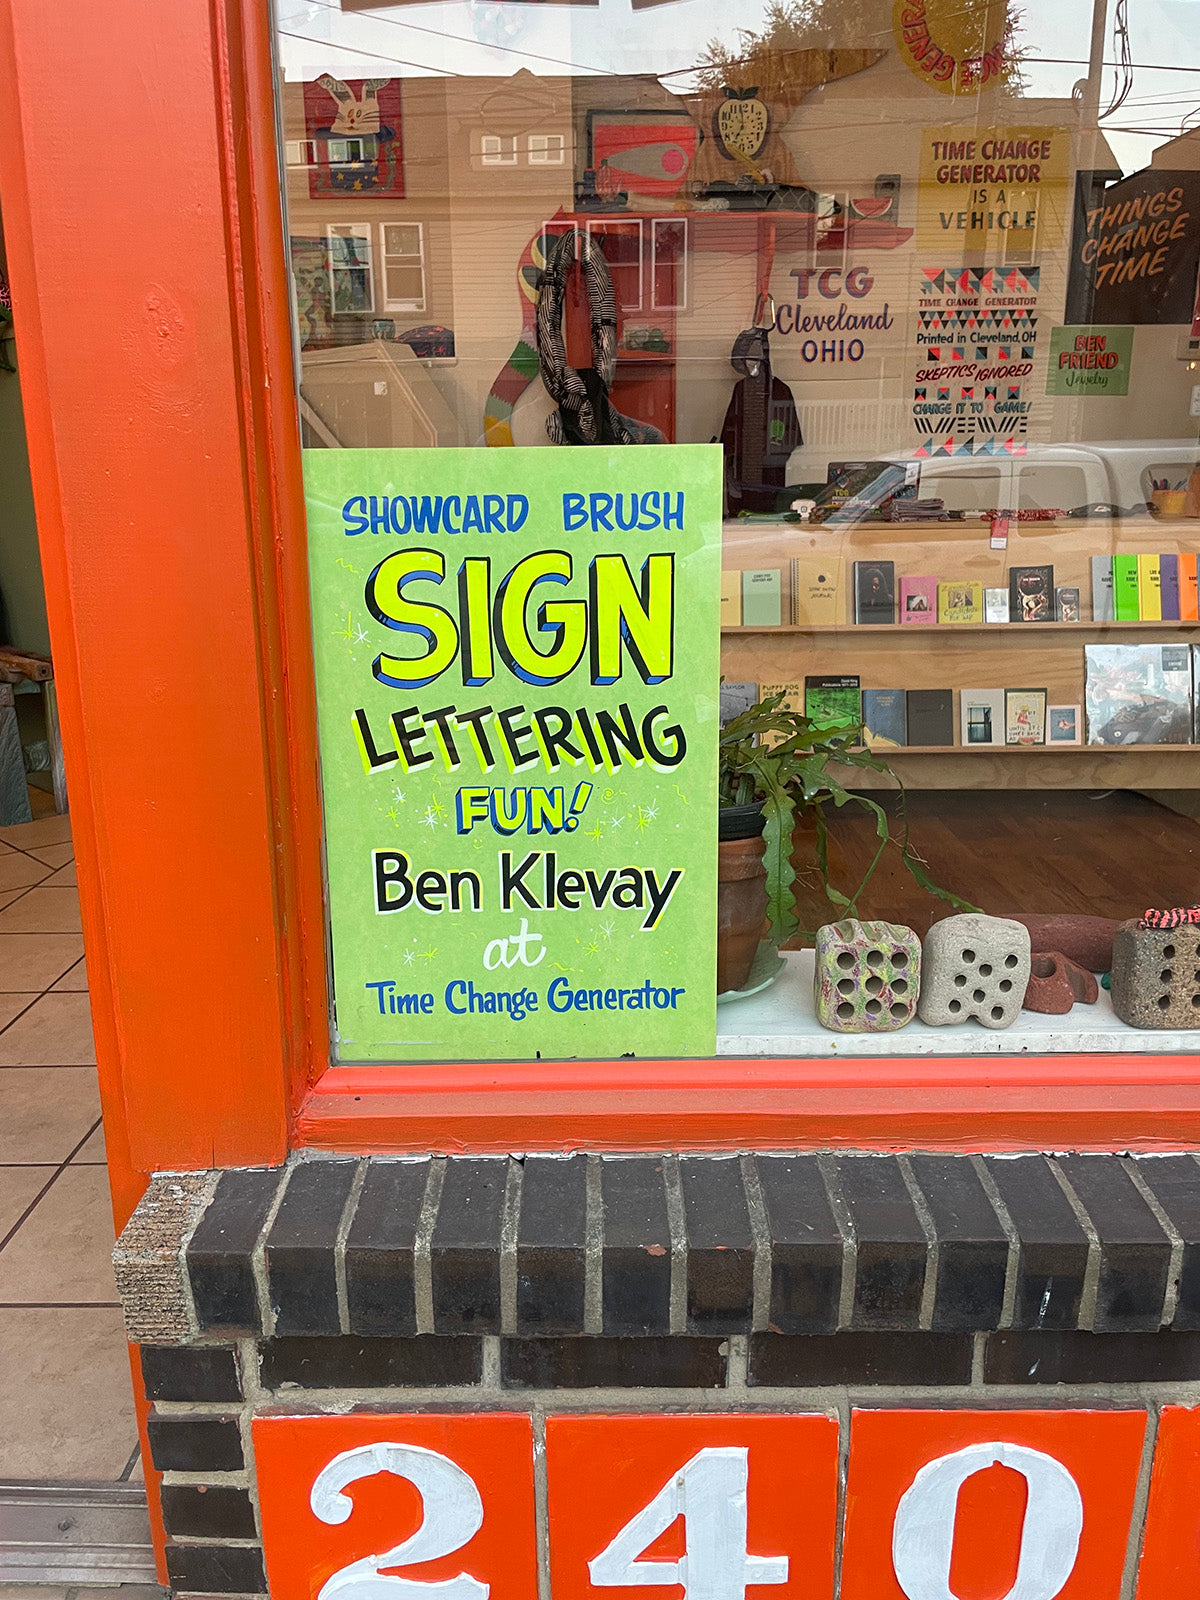 TIME CHANGE
GENERATOR
IS A
VEHICLE
THINGS
CHANGE
TIME
TCG
Cleveland
OHIO
TIME CHANGE GENERATOR
Printed in Cleveland, OH
SKEPTICS IGNORED
CHANGE IT TO GAME!
BEN
FRIEND
Jewelry
SHOWCARD BRUSH
SIGN
LETTERING
FUN!
Ben Klevay
at
Time Change Generator
PUPPY DOG
240